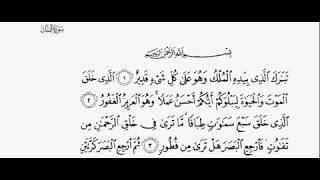 سورة الملك
بسم الله الرحمن الرحيم
تَبَٰرَكَ ٱلَّذِى بِيَدِهِ ٱلْمُلْكُ وَهُوَ عَلَىٰ كُلِّ شَىْءٍ قَدِيرٌ ۝١ ٱلَّذِى خَلَقَ
ٱلْمَوْتَ وَٱلْحَيَوٰةَ لِيَبْلُوَكُمْ أَيُّكُمْ أَحْسَنُ عَمَلًا ۚ وَهُوَ ٱلْعَزِيزُ ٱلْغَفُورُ ۝٢
ٱلَّذِى خَلَقَ سَبْعَ سَمَٰوَٰتٍ طِبَاقًا ۖ مَّا تَرَىٰ فِى خَلْقِ ٱلرَّحْمَٰنِ مِن
تَفَٰوُتٍ ۖ فَٱرْجِعِ ٱلْبَصَرَ هَلْ تَرَىٰ مِن فُطُورٍ ۝٣ ثُمَّ ٱرْجِعِ ٱلْبَصَرَ كَرَّتَيْنِ